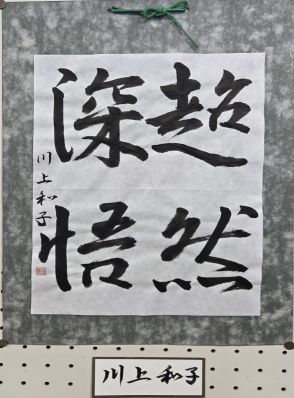 超然
深悟
川上和子
川上和子